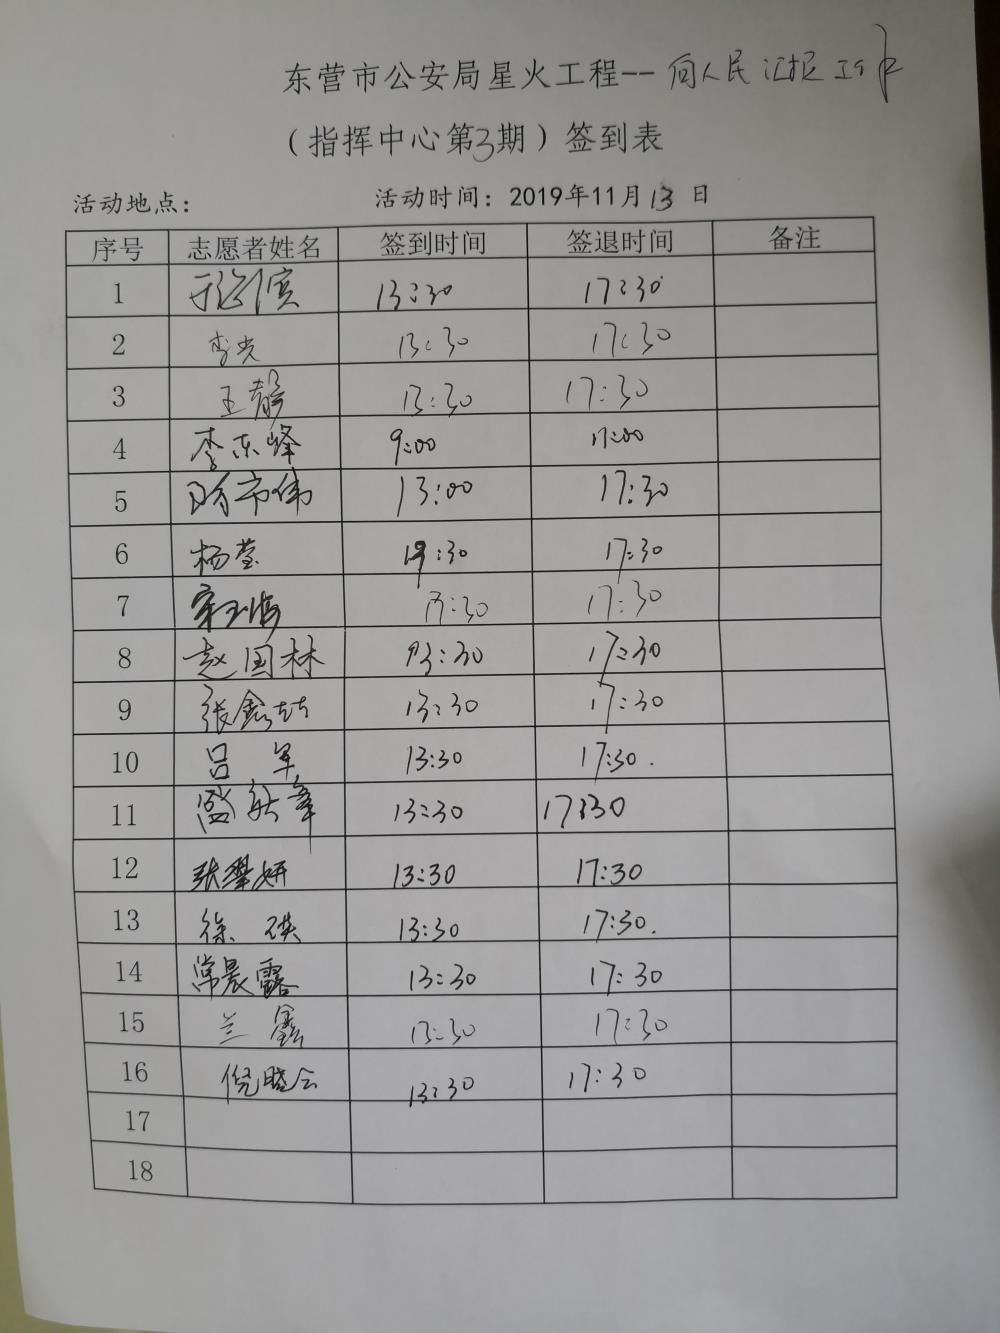 东营市公安局星火工程--向人民汇报工作
(指挥中心第3期)签到表
活动地点: 活动时间: 2019年11月13日
序号 志愿者姓名 签到时间 签退时间 备注
1 13:30 17:30
2 李光 13:30 17:30
3 王静 13:30 17:30
4 李东峰 9:00 17:00
5 市伟 13:00 17:30
6 杨莹 13:30 17:30
7 13:30 17:30
8 赵国林 13:30 17:30
9 张鑫喆 13:30 17:30
10 吕军 13:30 17:30.
11 盛 13:30 17:30
12 张翠妍 13:30 17:30
13 徐琪 13:30 17:30.
14 常晨露 13:30 17:30
15 兰鑫 13:30 17:30
16 倪晓云 13:30 17:30
17
18